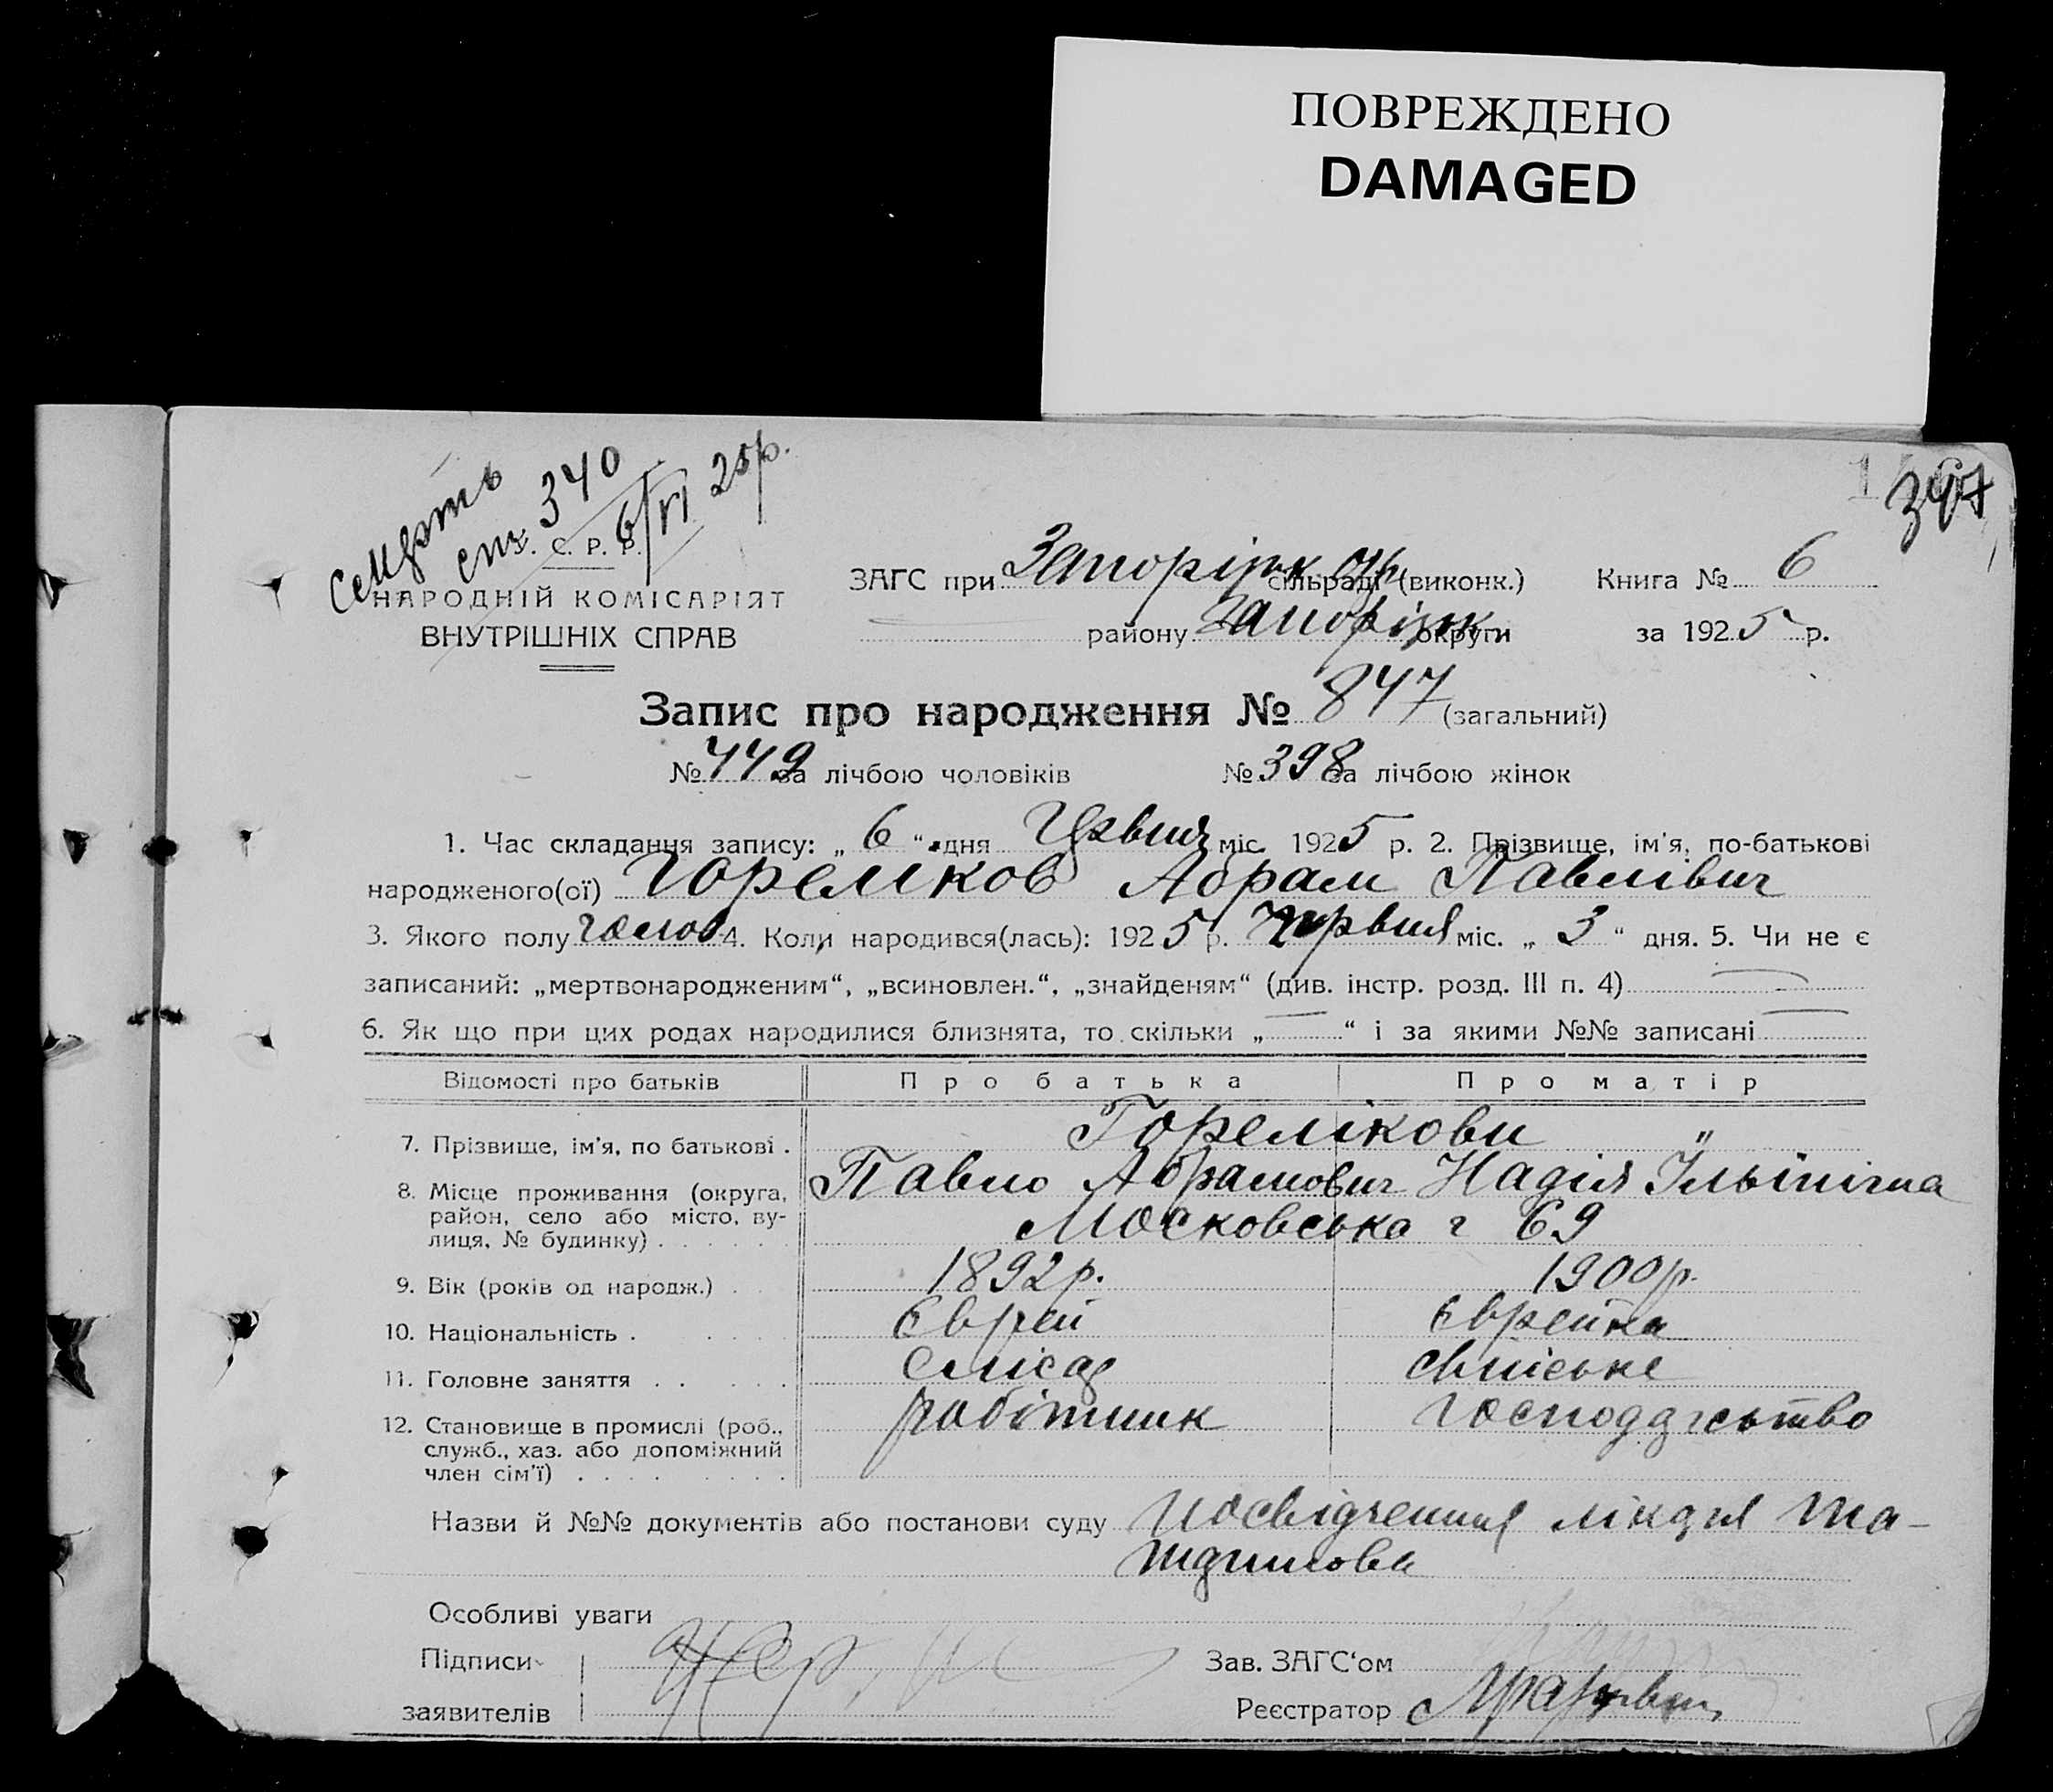 ПОВРЕЖДЕНО
DAMAGED
347
Смерть
спк 340
6/VI 25р.
У. С. Р. Р.
НАРОДНІЙ КОМІСАРІЯТ
ВНУТРІШНІХ СПРАВ
ЗАГС при Запоріжк окр сільраді (виконк.) Книга № 6
району Запоріжк округи за 1925 р.
Запис про народження № 847 (загальний)
№ 449 за лічбою чоловіків № 398 за лічбою жінок
1. Час складання запису: „ 6 “ дня Червня міс. 1925 р. 2. Прізвище, ім'я, по-батькові
народженого(ої) Гореліков Абрам Павлович
3. Якого полу чолов 4. Коли народився(лась): 1925 р. Червня міс. „ 3 “ дня. 5. Чи не є
записаний: „мертвонародженим“, „всиновлен.“, „знайденям“ (див. інстр. розд. III п. 4)
6. Як що при цих родах народилися близнята, то скільки „ — “ і за якими №№ записані —
Відомості про батьків Про батька Про матір
7. Прізвище, ім'я, по батькові . Горелікови "
Павло Абрамович Надія Ільінічна
8. Місце проживання (округа, район, село або місто, ву-
лиця, № будинку) . . . . . Московська ч 69
9. Вік (років од народж.) . . 1892р. 1900р.
10. Національність . . . . Єврей Єврейка
11. Головне заняття . . . . . Слюсар хатнє
12. Становище в промислі (роб., робітник господарство
служб., хаз. або допоміжний
член сім'ї) . . . . . . . .
Назви й №№ документів або постанови суду Посвідчення лікаря
Особливі уваги
Підписи Зав. ЗАГС‘ом
заявителів Реєстратор